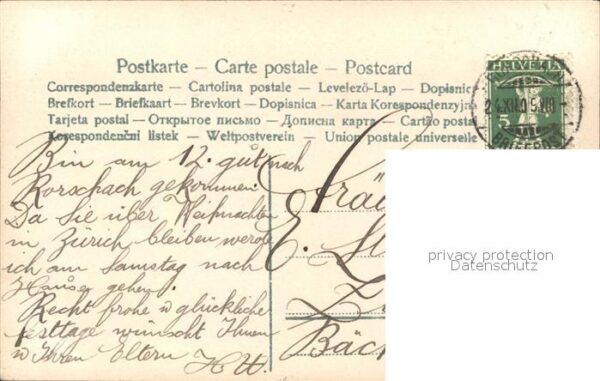 Postkarte – Carte postale – Postcard
Correspondenzkarte – Cartolina postale – Levelező-Lap – Dopisnic
Brefkort – Briefkaart – Brevkort – Dopisnica – Karta Korespondenzyjna
Tarjeta postal – Открытое письмо – Дописна карта – Cartão postal
Korespondenční listek – Weltpostverein – Union postale universelle
HELVETIA
5
24.XII.09
BRIEFPOST
Bin am 12. gut nach
Rorschach gekommen.
Da Sie über Weihnachten
in Zürich bleiben, werde
ich am Samstag nach
Hause gehen.
Recht frohe u glückliche
Festtage wünscht Ihnen
u Ihren Eltern H W.
Fräu
E. St
Bäch
privacy protection
Datenschutz